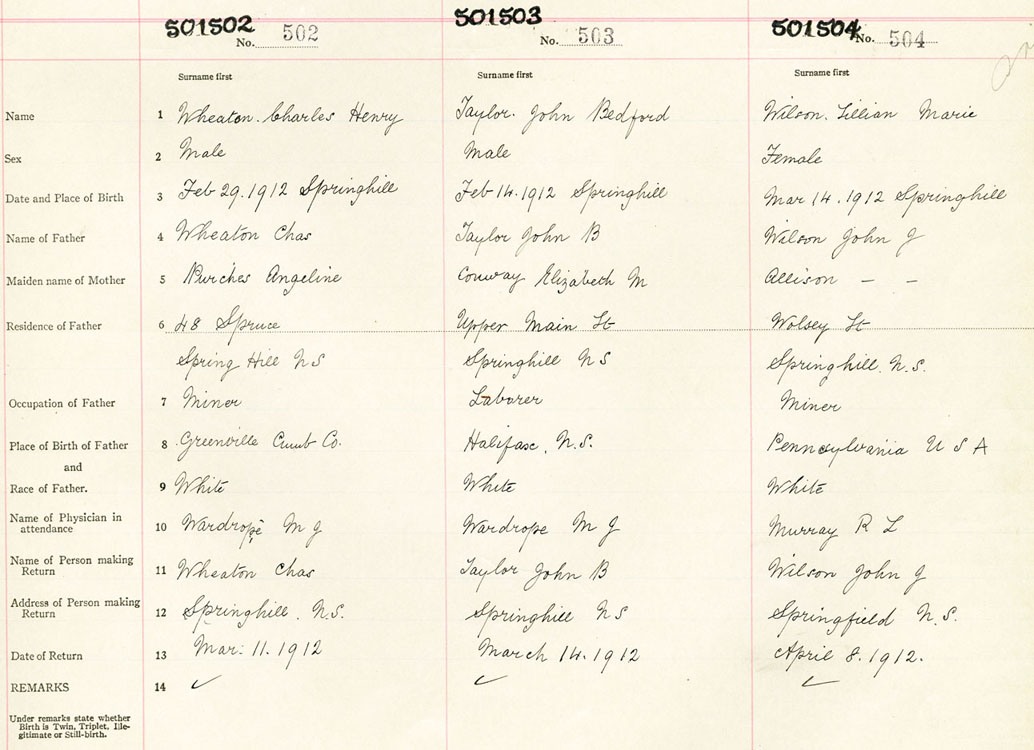 501502 501503 501504
No. 502 No. 503 No. 504
Surname first Surname first Surname first
Name 1 Wheaton. Charles Henry Taylor. John Bedford Wilson. Lillian Marie
Sex 2 Male Male Female
Date and Place of Birth 3 Feb 29. 1912 Springhill Feb 14. 1912 Springhill Mar 14. 1912 Springhill
Name of Father 4 Wheaton Chas Taylor John B Wilson John J
Maiden name of Mother 5 Angeline Conway Elizabeth M Allison — —
Residence of Father 6 48 Spruce Upper Main St Wolsey St
Spring Hill N S Springhill N S Springhill. N.S.
Occupation of Father 7 Miner Laborer Miner
Place of Birth of Father 8 Greenville Cumb Co. Halifax, N.S. Pennsylvania U S A
and
Race of Father. 9 White White White
Name of Physician in
attendance 10 Wardrope M J Wardrope M J Murray R L
Name of Person making
Return 11 Wheaton Chas Taylor John B Wilson John J
Address of Person making
Return 12 Springhill. N.S. Springhill N S Springfield N.S.
Date of Return 13 Mar: 11. 1912 March 14. 1912 April 8. 1912.
REMARKS 14 ✓ ✓ ✓
Under remarks state whether
Birth is Twin, Triplet, Ille-
gitimate or Still-birth.